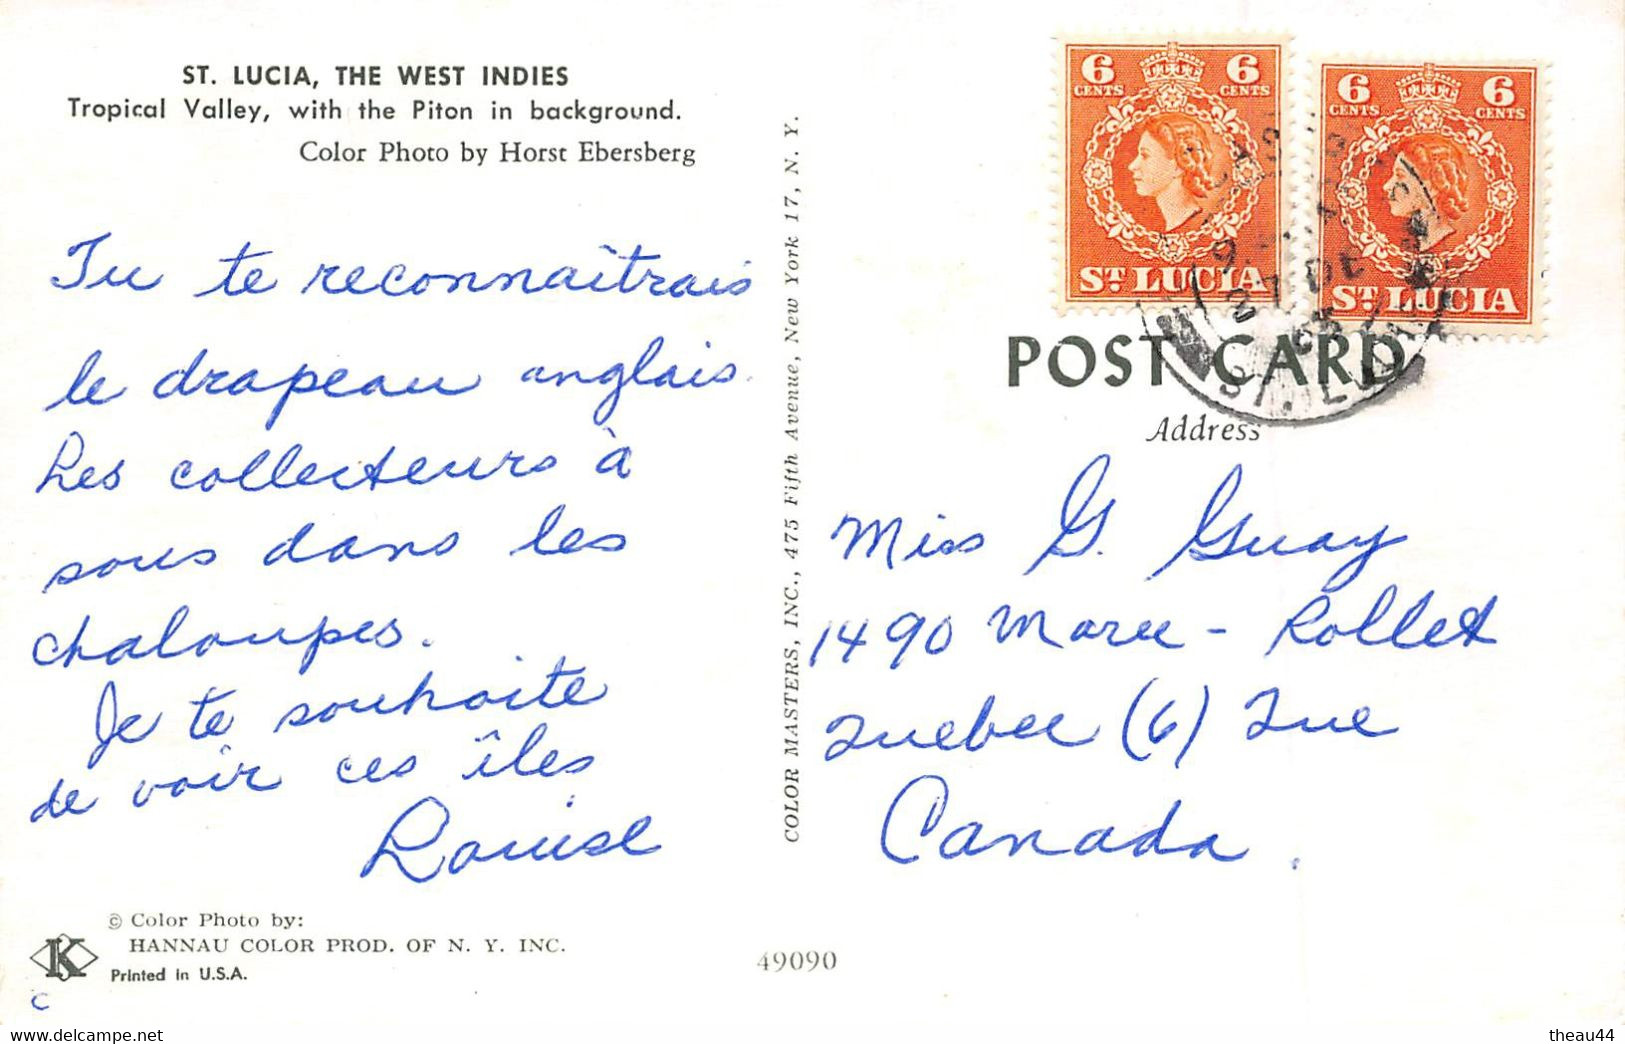 ST. LUCIA, THE WEST INDIES
Tropical Valley, with the Piton in background.
Color Photo by Horst Ebersberg
Tu te reconnaîtrais
le drapeau anglais.
Les collecteurs à
sous dans les
chaloupes.
Je te souhaite
de voir ces îles
Louise
© Color Photo by:
HANNAU COLOR PROD. OF N. Y. INC.
K
Printed in U.S.A.
C
49090
COLOR MASTERS, INC., 475 Fifth Avenue, New York 17, N. Y.
6 CENTS 6 CENTS
ST. LUCIA
6 CENTS 6 CENTS
ST. LUCIA
ST. LUCIA
POST CARD
Address
Miss G. Guay
1490 Marie-Rollet
Quebec (6) Que
Canada.
delcampe.net
theau44